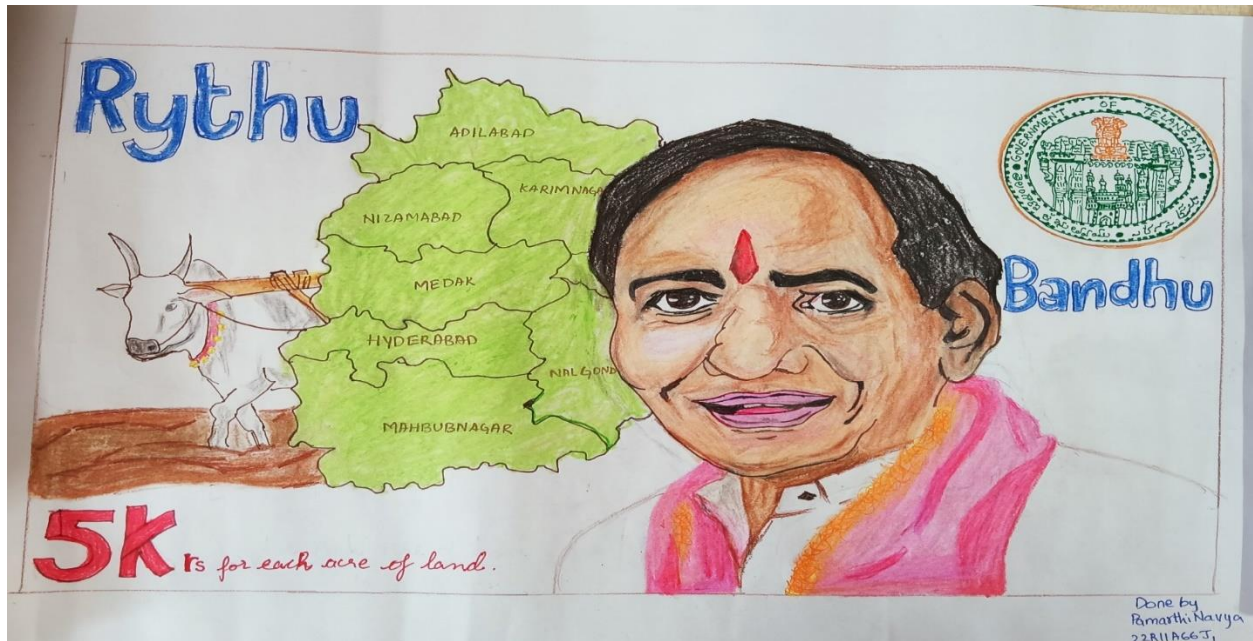 Rythu
ADILABAD
KARIMNAGA
NIZAMABAD
MEDAK
HYDERABAD
NALGOND
MAHBUBNAGAR
GOVERNMENT OF TELANGANA
Bandhu
5K rs for each acre of land.
Done by
Pamarthi Navya